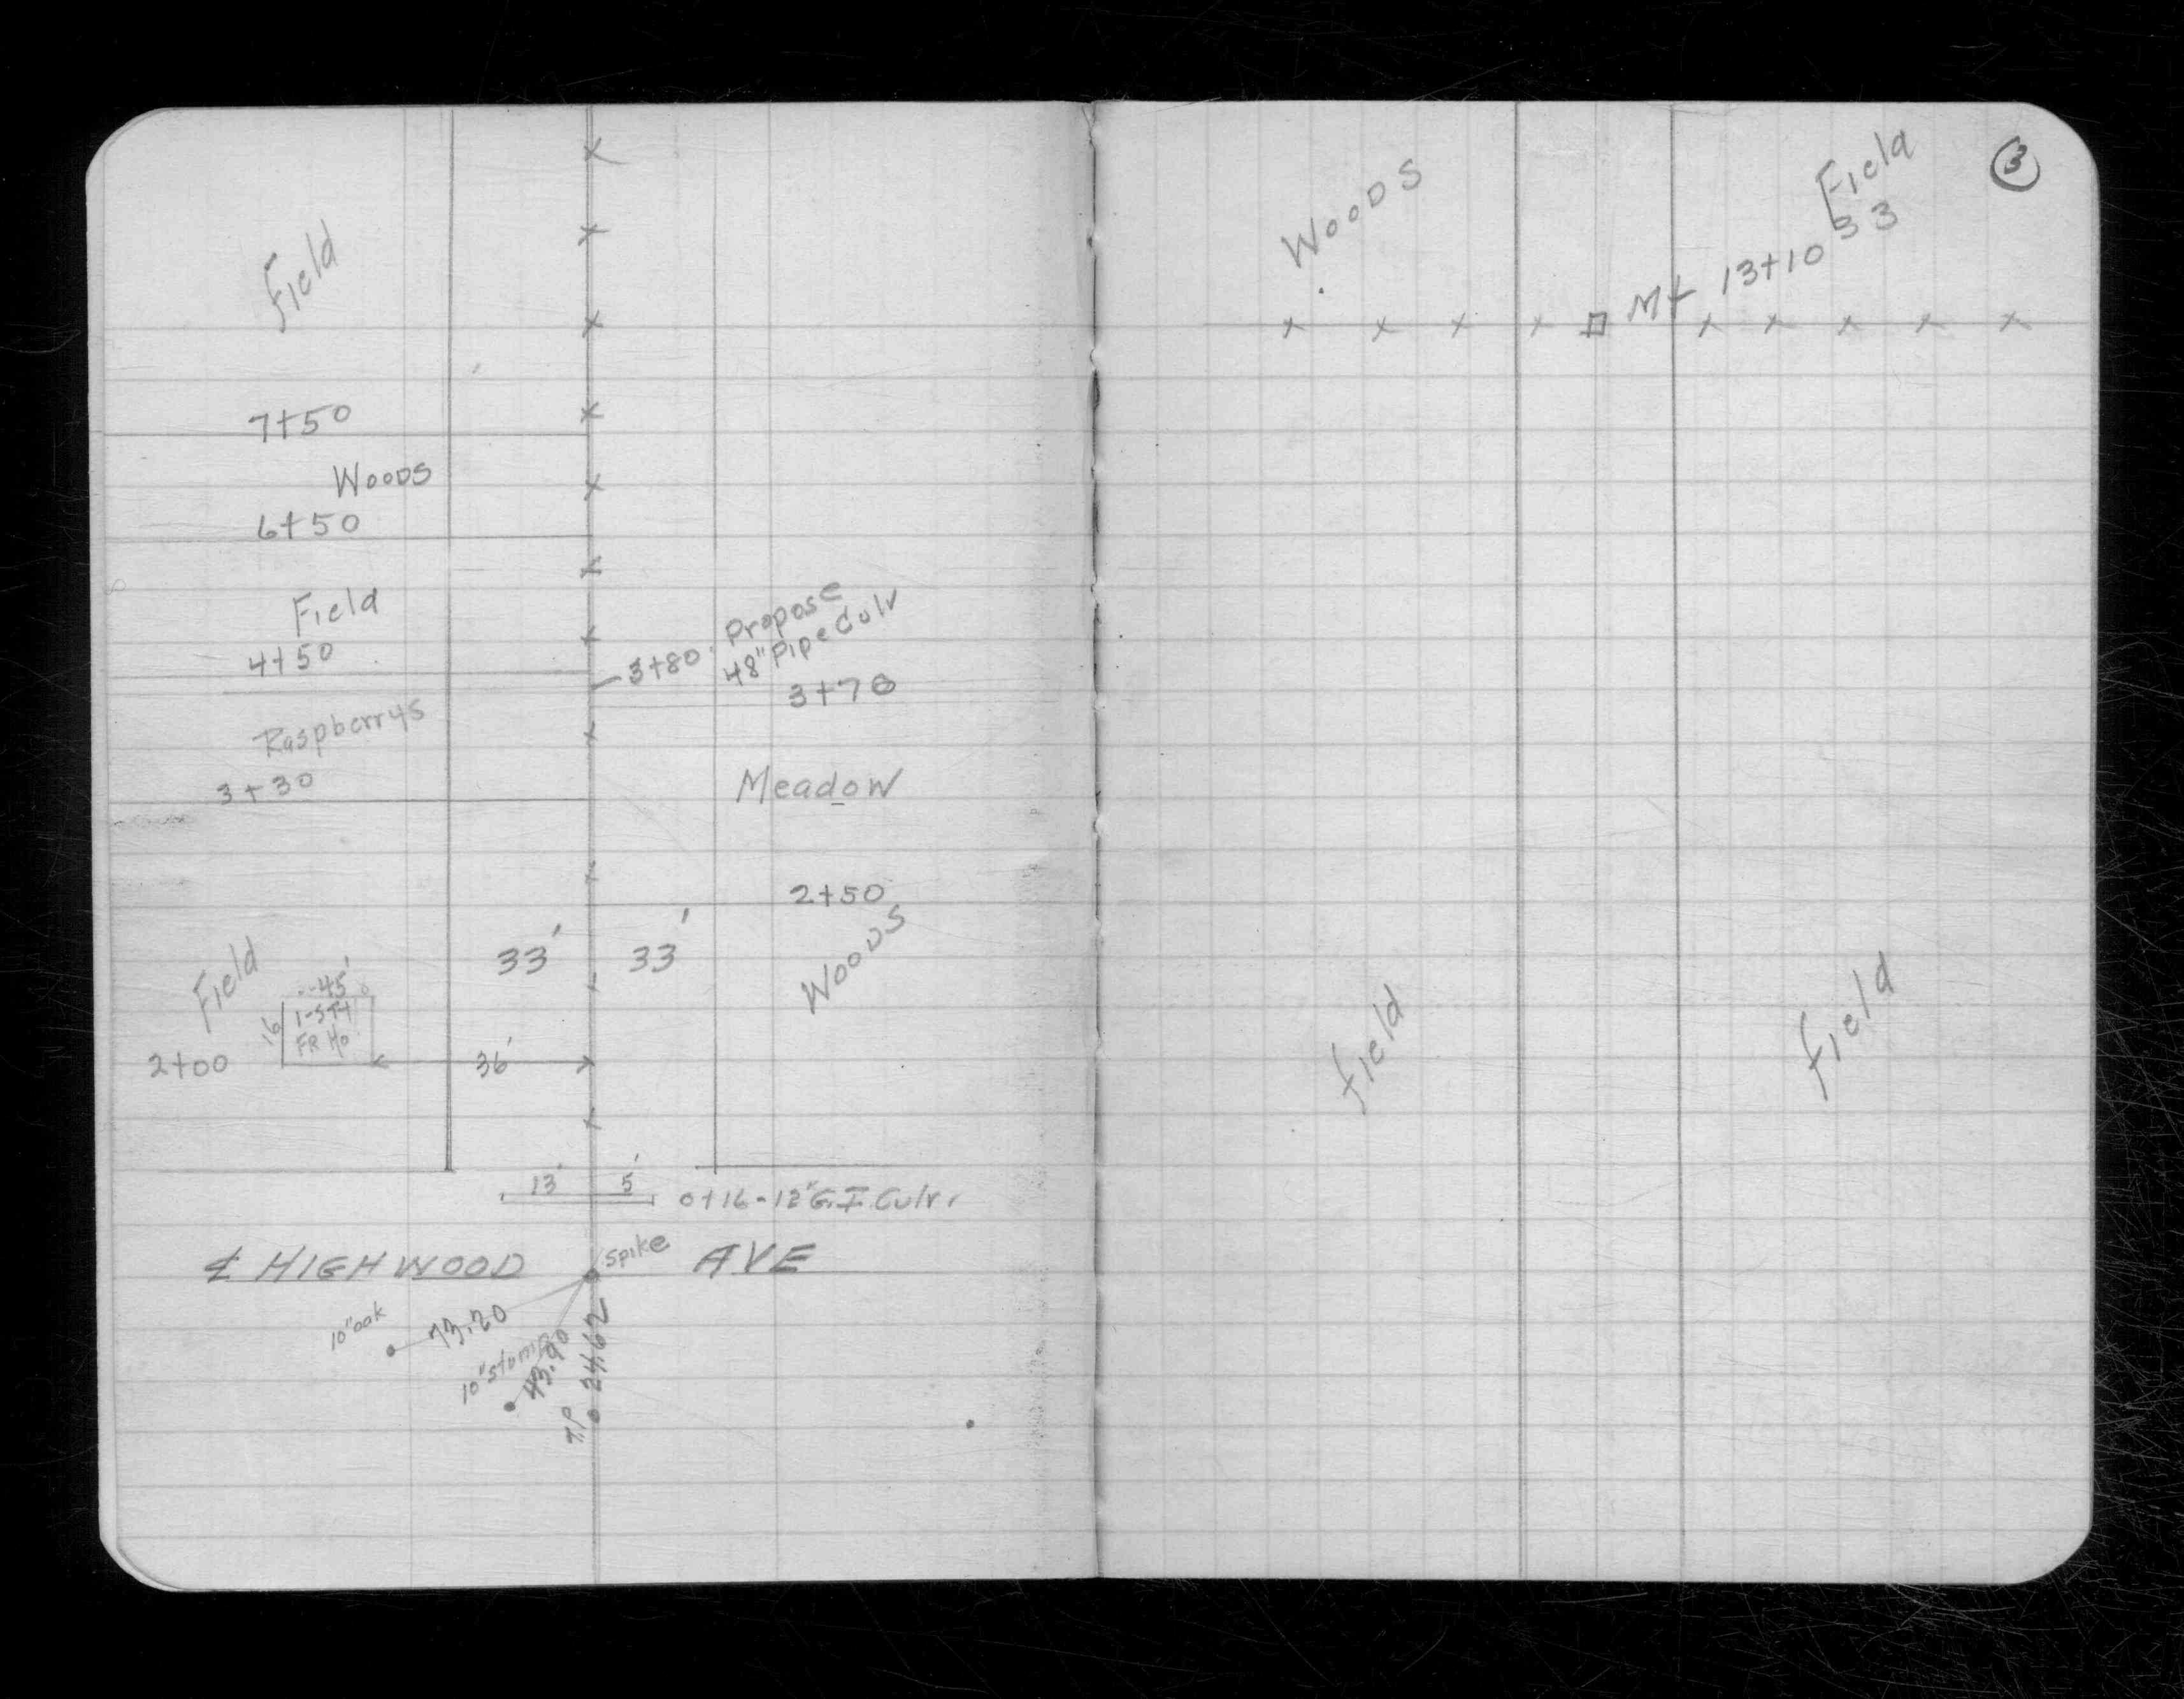 Field
7+50
Woods
6+50
Field
4+50
3+80 Propose
48" Pipe Culv
Raspberrys
3+30
Meadow
2+50
33' 33'
Woods
Field
45'
16
1-Sty
FR Ho
2+00
36'
13' 5'
0+16-12" G.I. Culv.
℄ HIGHWOOD AVE
Spike
10" oak
73.20
10" stump
43.90
24.62
T.P.
3
Woods
Field
Mt 13+10 33
Field
Field